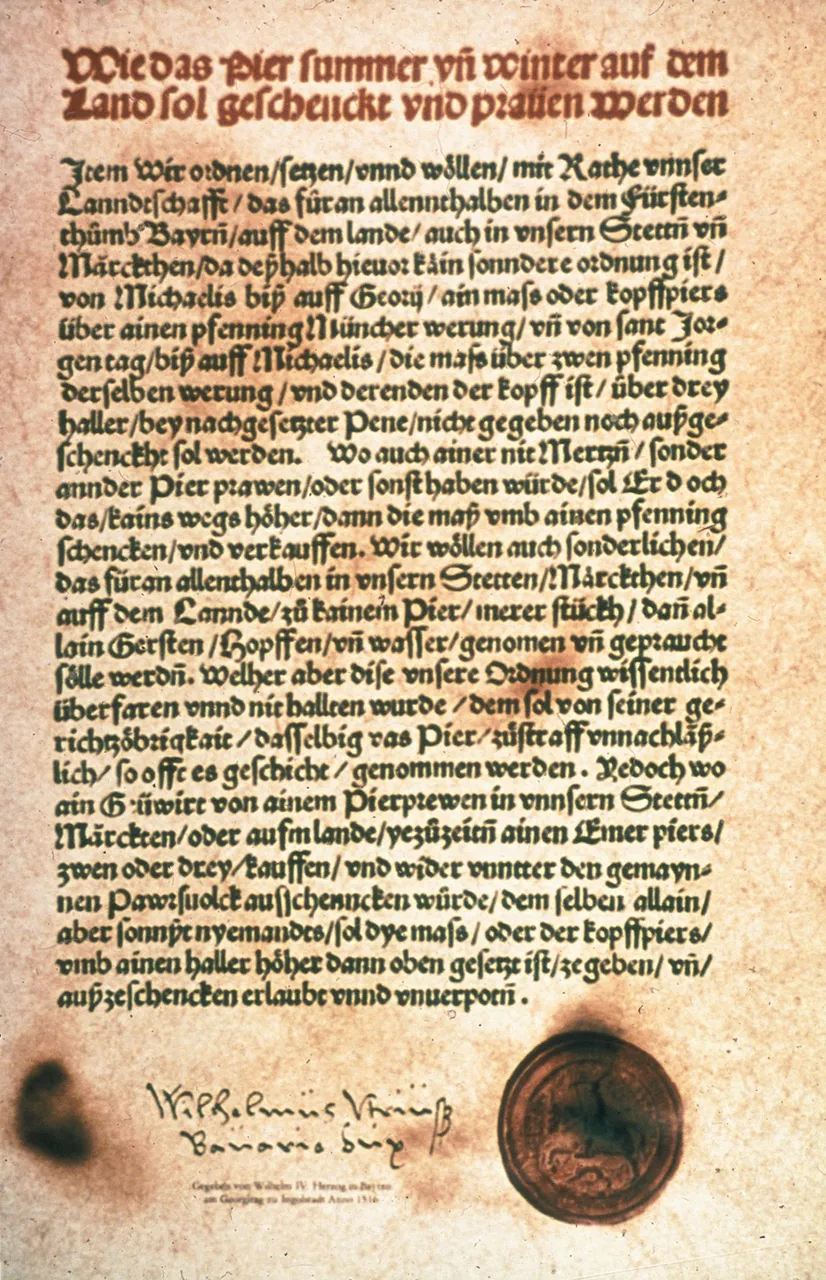 Wie das Pier summer vñ winter auf dem
Land sol geschenckt vnd praüen werden
Item Wir ordnen/setzen/vnnd wöllen/ mit Rathe vnnser
Lanndtschafft / das füran allennthalben in dem Fürsten-
thůmb Bayrñ/auff dem lande/ auch in vnsern Stettñ vñ
Märckthen/da deßhalb hieuor kain sonndere ordnung ist /
von Michaelis biß auff Georij / ain mass oder kopffpiers
über ainen pfenning Müncher werung/ vñ von sant Jor-
gen tag/biß auff Michaelis / die mass über zwen pfenning
derselben werung / vnd derenden der kopff ist / über drey
haller/bey nachgesetzter Pene/nicht gegeben noch außge-
schenckht sol werden. Wo auch ainer nit Mertzñ / sonder
annder Pier prawen/oder sonst haben würde/sol Er d och
das/kains wegs höher/dann die maß vmb ainen pfenning
schencken/vnd verkauffen. Wir wöllen auch sonderlichen/
das füran allenthalben in vnsern Stetten/Märckthen/vñ
auff dem Lannde/zů kainem Pier/merer stückh / dañ al-
lain Gersten /Hopffen/vñ wasser/genomen vñ gepraucht
sölle werdñ. Welher aber dise vnsere Ordnung wissentlich
überfaren vnnd nit hallten wurde / dem sol von seiner ge-
richtzöbrigkait / dasselbig vas Pier/zůstraff vnnachläß-
lich/ so offt es geschicht / genommen werden . Yedoch wo
ain G üwirt von ainem Pierprewen in vnnsern Stettñ/
Märckten/oder aufm lande/yezůzeitñ ainen Emer piers/
zwen oder drey/kauffen/ vnd wider vnntter den gemayn-
nen Pawrsuolck ausschenncken würde/ dem selben allain/
aber sonnßt nyemandts/sol dye mass / oder der kopffpiers/
vmb ainen haller höher dann oben gesetzt ist/ze geben/ vñ/
außzeschencken erlaubt vnnd vnuerpotñ .
Wilhelmus
Bavarie Dux
Gegeben von Wilhelm IV. Herzog in Bayern
am Georgitag zu Ingolstadt Anno 1516